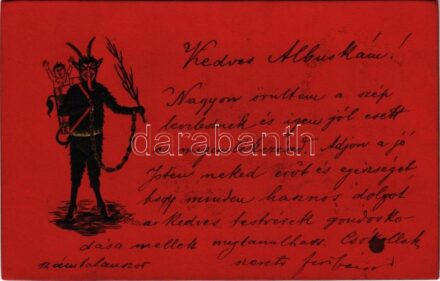 Kedves Albuskám!
Nagyon örültem a szép
levelednek és igen jól esett
darabanth
Adjon a jó
Isten neked erőt és egészséget
hogy minden hasznos dolgot
a kedves testvérek gondosko-
dása mellett megtanulhass. Csókollak
számtalanszor szerető